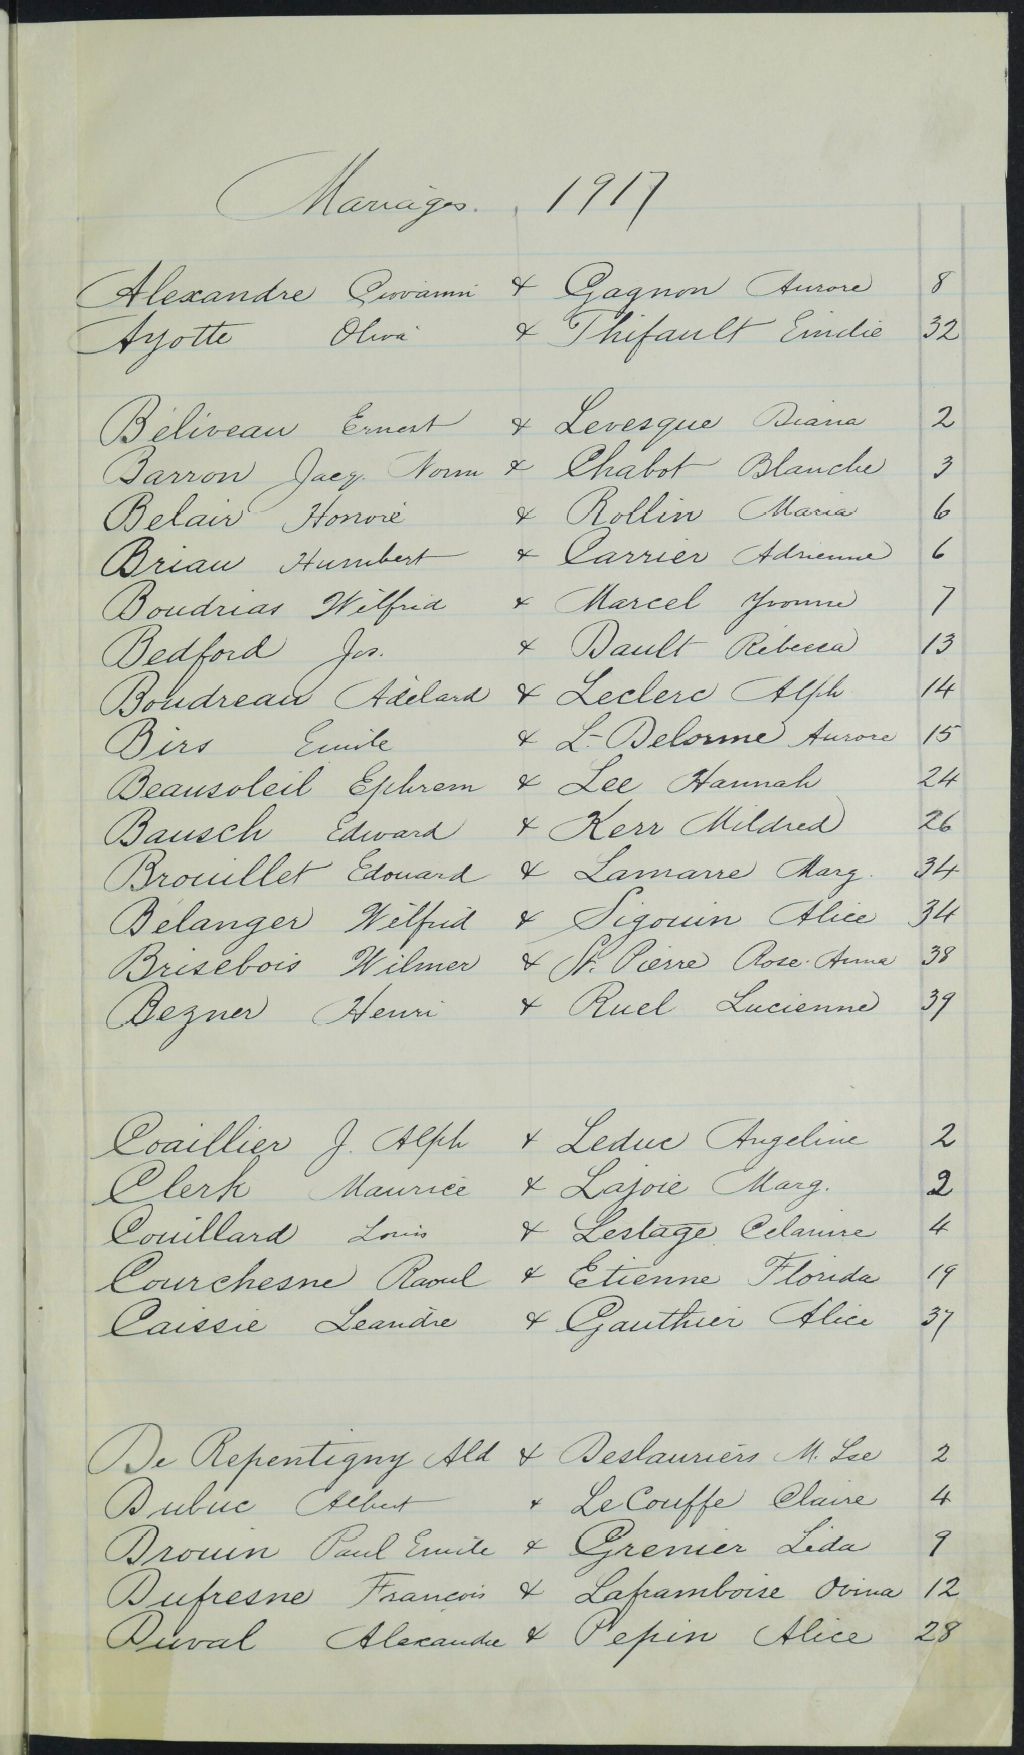 Mariages. 1917
Alexandre Giovanni & Gagnon Aurore 8
Ayotte Oliva & Thifault Emélie 32
Béliveau Ernest & Levesque Diana 2
Barron Jacq. Norm & Chabot Blanche 3
Belair Honoré & Rollin Maria 6
Briau Humbert & Carrier Adrienne 6
Boudrias Wilfrid & Marcel Yvonne 7
Bedford Jos. & Dault Rébecca 13
Boudreau Adélard & Leclerc Alph 14
Birs Emile & L-Delorme Aurore 15
Beausoleil Ephrem & Lee Hannah 24
Bausch Edward & Kerr Mildred 26
Brouillet Edouard & Lamarre Marg. 34
Bélanger Wilfrid & Sigouin Alice 34
Brisebois Wilmer & St. Pierre Rose-Anna 38
Bezner Henri & Ruel Lucienne 39
Coaillier J. Alph & Leduc Angeline 2
Clerk Maurice & Lajoie Marg. 2
Couillard Louis & Lestage Celanire 4
Courchesne Raoul & Etienne Florida 19
Caissie Léandre & Gauthier Alice 37
De Repentigny Ald & Deslauriers M. Lse 2
Dubuc Albert & LeCouffe Claire 4
Drouin Paul Emile & Grenier Léda 9
Dufresne François & Laframboise Ovina 12
Duval Alexandre & Pepin Alice 28